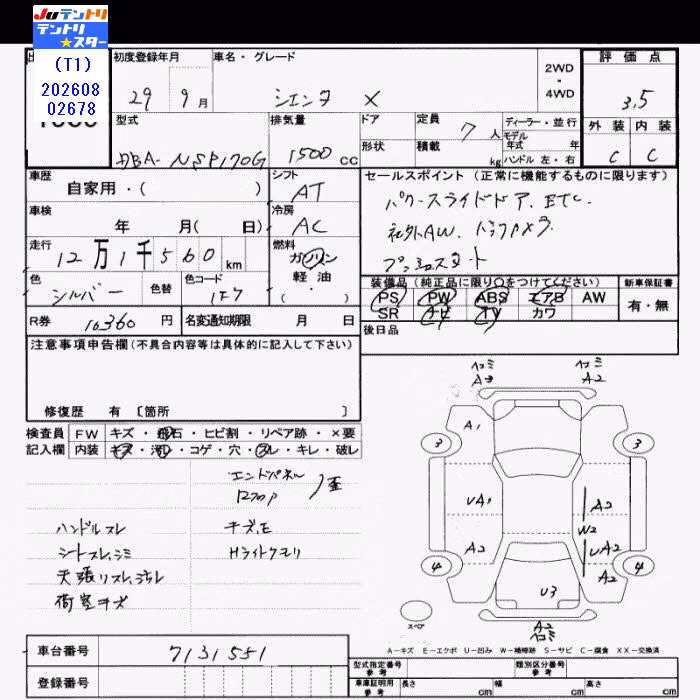 JUテントリ
テントリ★スター
(T1)
202608
02678
初度登録年月
29年 9月
車名・グレード
シエンタ X
2WD・4WD
評価点
3.5
外装 内装
C C
型式
DBA-NSP170G
排気量
1500 cc
ドア
形状
定員 7人
積載 kg
ディーラー・並行
モデル年式 年
ハンドル 左・右
車歴
自家用・( )
シフト
AT
車検
年 月( 日)
冷房
AC
走行
12万1千560 km
燃料
ガソリン
軽・油
・( )
色
シルバー
色替
色コード
1F7
R券 10360 円
名変通知期限 月 日
セールスポイント (正常に機能するものに限ります)
パワースライドドア、ETC、
社外AW、バックカメラ
プッシュスタート
装備品 (純正品に限り○をつけてください)
PS PW ABS エアB AW
SR ナビ TV カワ
新車保証書
有・無
後日品
注意事項申告欄(不具合内容等は具体的に記入して下さい)
修復歴 有 〔箇所 〕
検査員記入欄
FW キズ・飛石・ヒビ割・リペア跡・×要
内装 キズ・汚れ・コゲ・穴・スレ・キレ・破レ
エンドパネル
ロアフロア
歪
ハンドルスレ
シートスレ、シミ
天張リスレ、汚れ
荷室キズ
キズ、モ
Hライトクモリ
ヘコミ
A3
ヘコミ
A2
A1
3
3
UA1
A2
A2
W2
UA2
A2
4
4
U3
A2
ヘコミ
スペア
A−キズ E−エクボ U−凹み W−補修跡 S−サビ C−腐食 XX−交換済
車台番号 7131551
登録番号
型式指定番号 参考
類別区分番号 参考
車庫証明用 参考 長さ cm 幅 cm 高さ cm